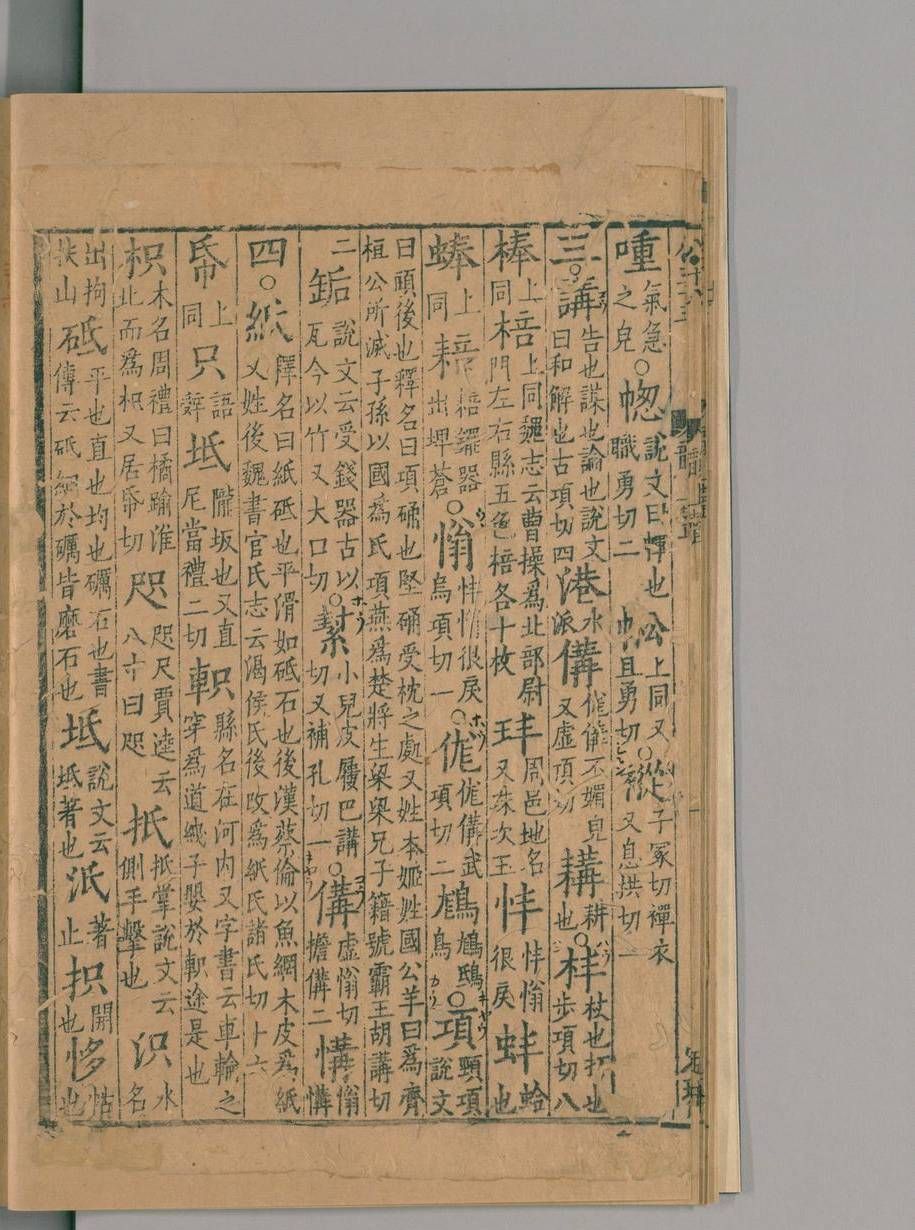 喠氣急之皃○㥖說文曰憚也職勇切二蚣上同又且勇切○子冢切襌衣又息拱切一
三○講告也謀也論也說文曰和解也古項切四港水派傋㑋傋不媚皃又虛項切耩耕也○杖也打也步項切八
棒上同棓上同魏志云曹操爲北部尉門左右縣五色棓各十枚玤周邑地名又珠次玉㤶㤶愹很戾蚌蛤也
蜯上同棓䥯器出埤蒼○愹㤶愹很戾烏項切一○㑋㑋傋武項切二䳟䳟鴟鳥○項頸項說文
曰頭後也釋名曰項确也堅确受枕之處又姓本姬姓國公羊曰爲齊桓公所滅子孫以國爲氏項燕爲楚將生梁梁兄子籍號霸王胡講切
二缿說文云受錢器古以瓦今以竹又大口切○小兒皮屨巴講切又補孔切一○傋虛愹切擔傋二愹
四○紙釋名曰紙砥也平滑如砥石也後漢蔡倫以魚網木皮爲紙又姓後魏書官氏志云渴侯氏後改爲紙氏諸氏切十六
帋上同只語辭坻隴坂也又直尼當禮二切軹縣名在河內又字書云車輪之穿爲道子嬰於軹途是也
枳木名周禮曰橘踰淮北而爲枳又居帋切咫咫尺賈逵云八寸曰咫抵抵掌說文云側手擊也汦水名
出拘扶山砥平也直也均也礪石也書傳云砥細於礪皆磨石也坻說文云坻著也泜著止抧開也恀怙也